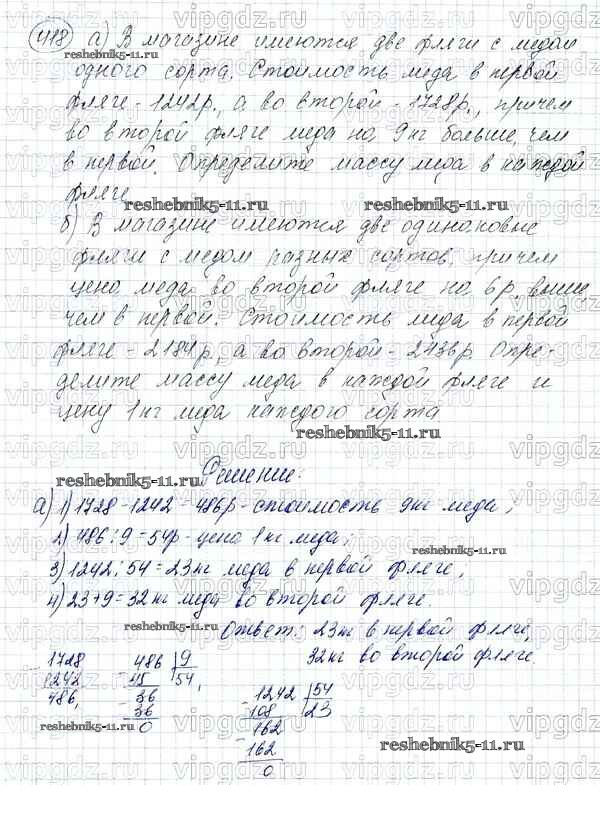 418 а) В магазине имеются две фляги с медом
одного сорта. Стоимость меда в первой
фляге - 1242р., а во второй - 1728р., причем
во второй фляге меда на 9кг больше, чем
в первой. Определите массу меда в каждой
фляге
reshebnik5-11.ru
б) В магазине имеются две одинаковые
фляги с медом разных сортов, причем
цена меда во второй фляге на 6р, выше,
чем в первой. Стоимость меда в первой
фляге - 2184р, а во второй - 2436р. Опре-
делите массу меда в каждой фляге и
цену 1кг меда каждого сорта
reshebnik5-11.ru
Решение:
а) 1) 1728 - 1242 = 486р - стоимость 9кг меда;
2) 486 : 9 = 54р - цена 1кг меда;
3) 1242 : 54 = 23кг меда в первой фляге;
4) 23 + 9 = 32кг меда во второй фляге.
Ответ: 23кг в первой фляге,
32кг во второй фляге.
1728 486 9
1242 45 54
486 36
36
0
1242 54
108 23
162
162
0
reshebnik5-11.ru
vipgdz.ru